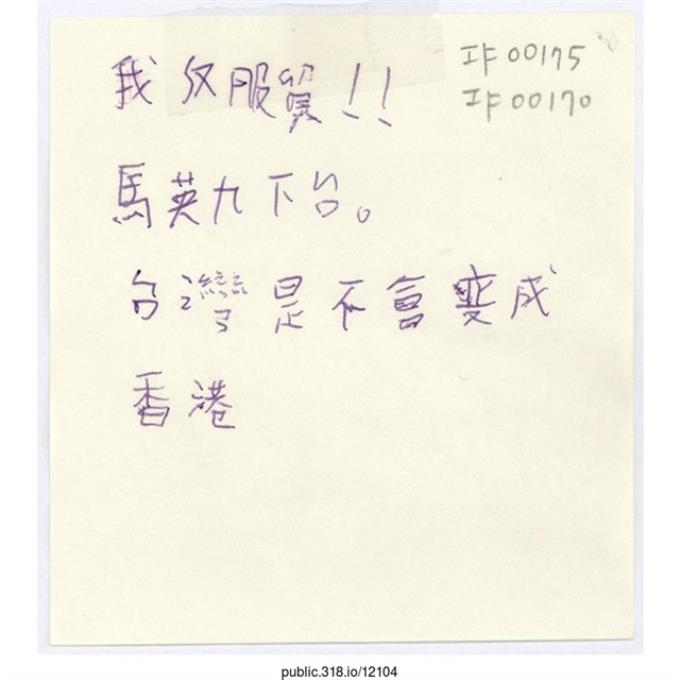 我反服貿!!
00175
00170
馬英九下台。
台灣是不會変成
香港
public.318.io/12104